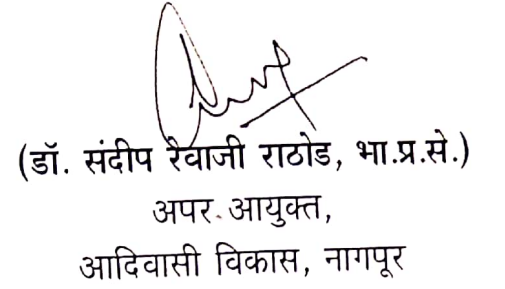 (डॉ. संदीप रेवाजी राठोड, भा.प्र.से.)
अपर आयुक्त,
आदिवासी विकास, नागपूर